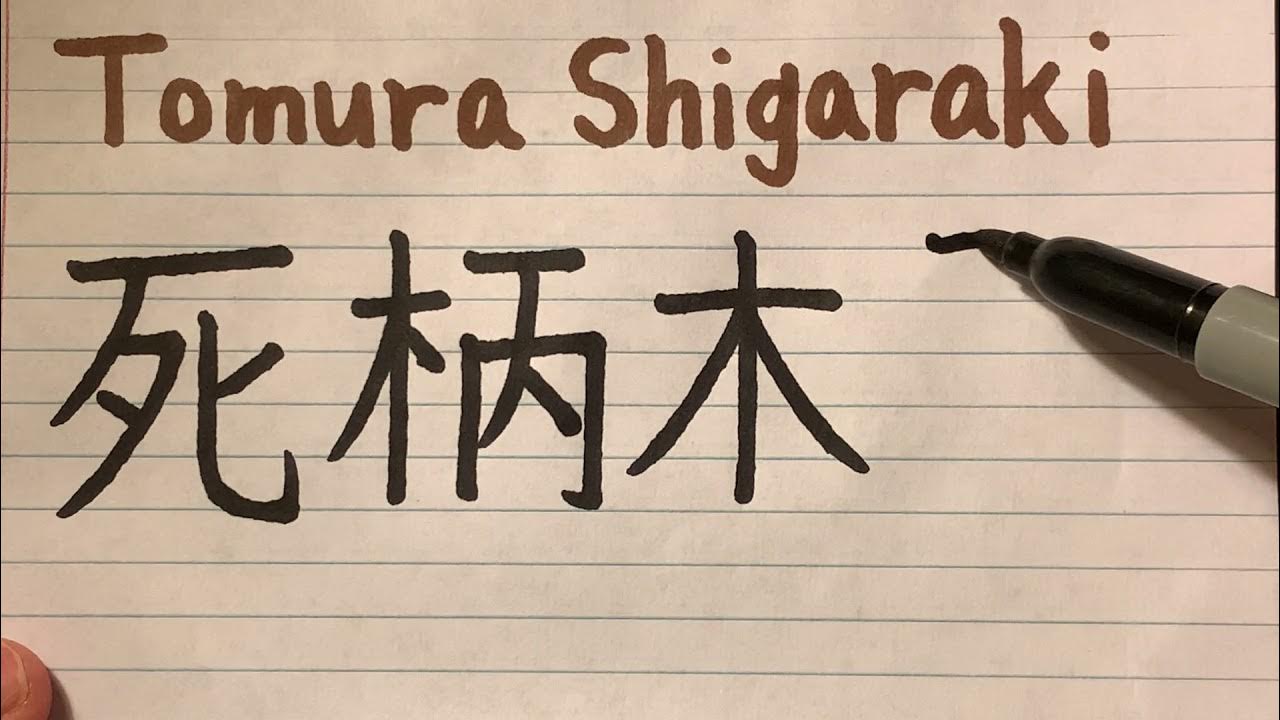 Tomura Shigaraki
死柄木